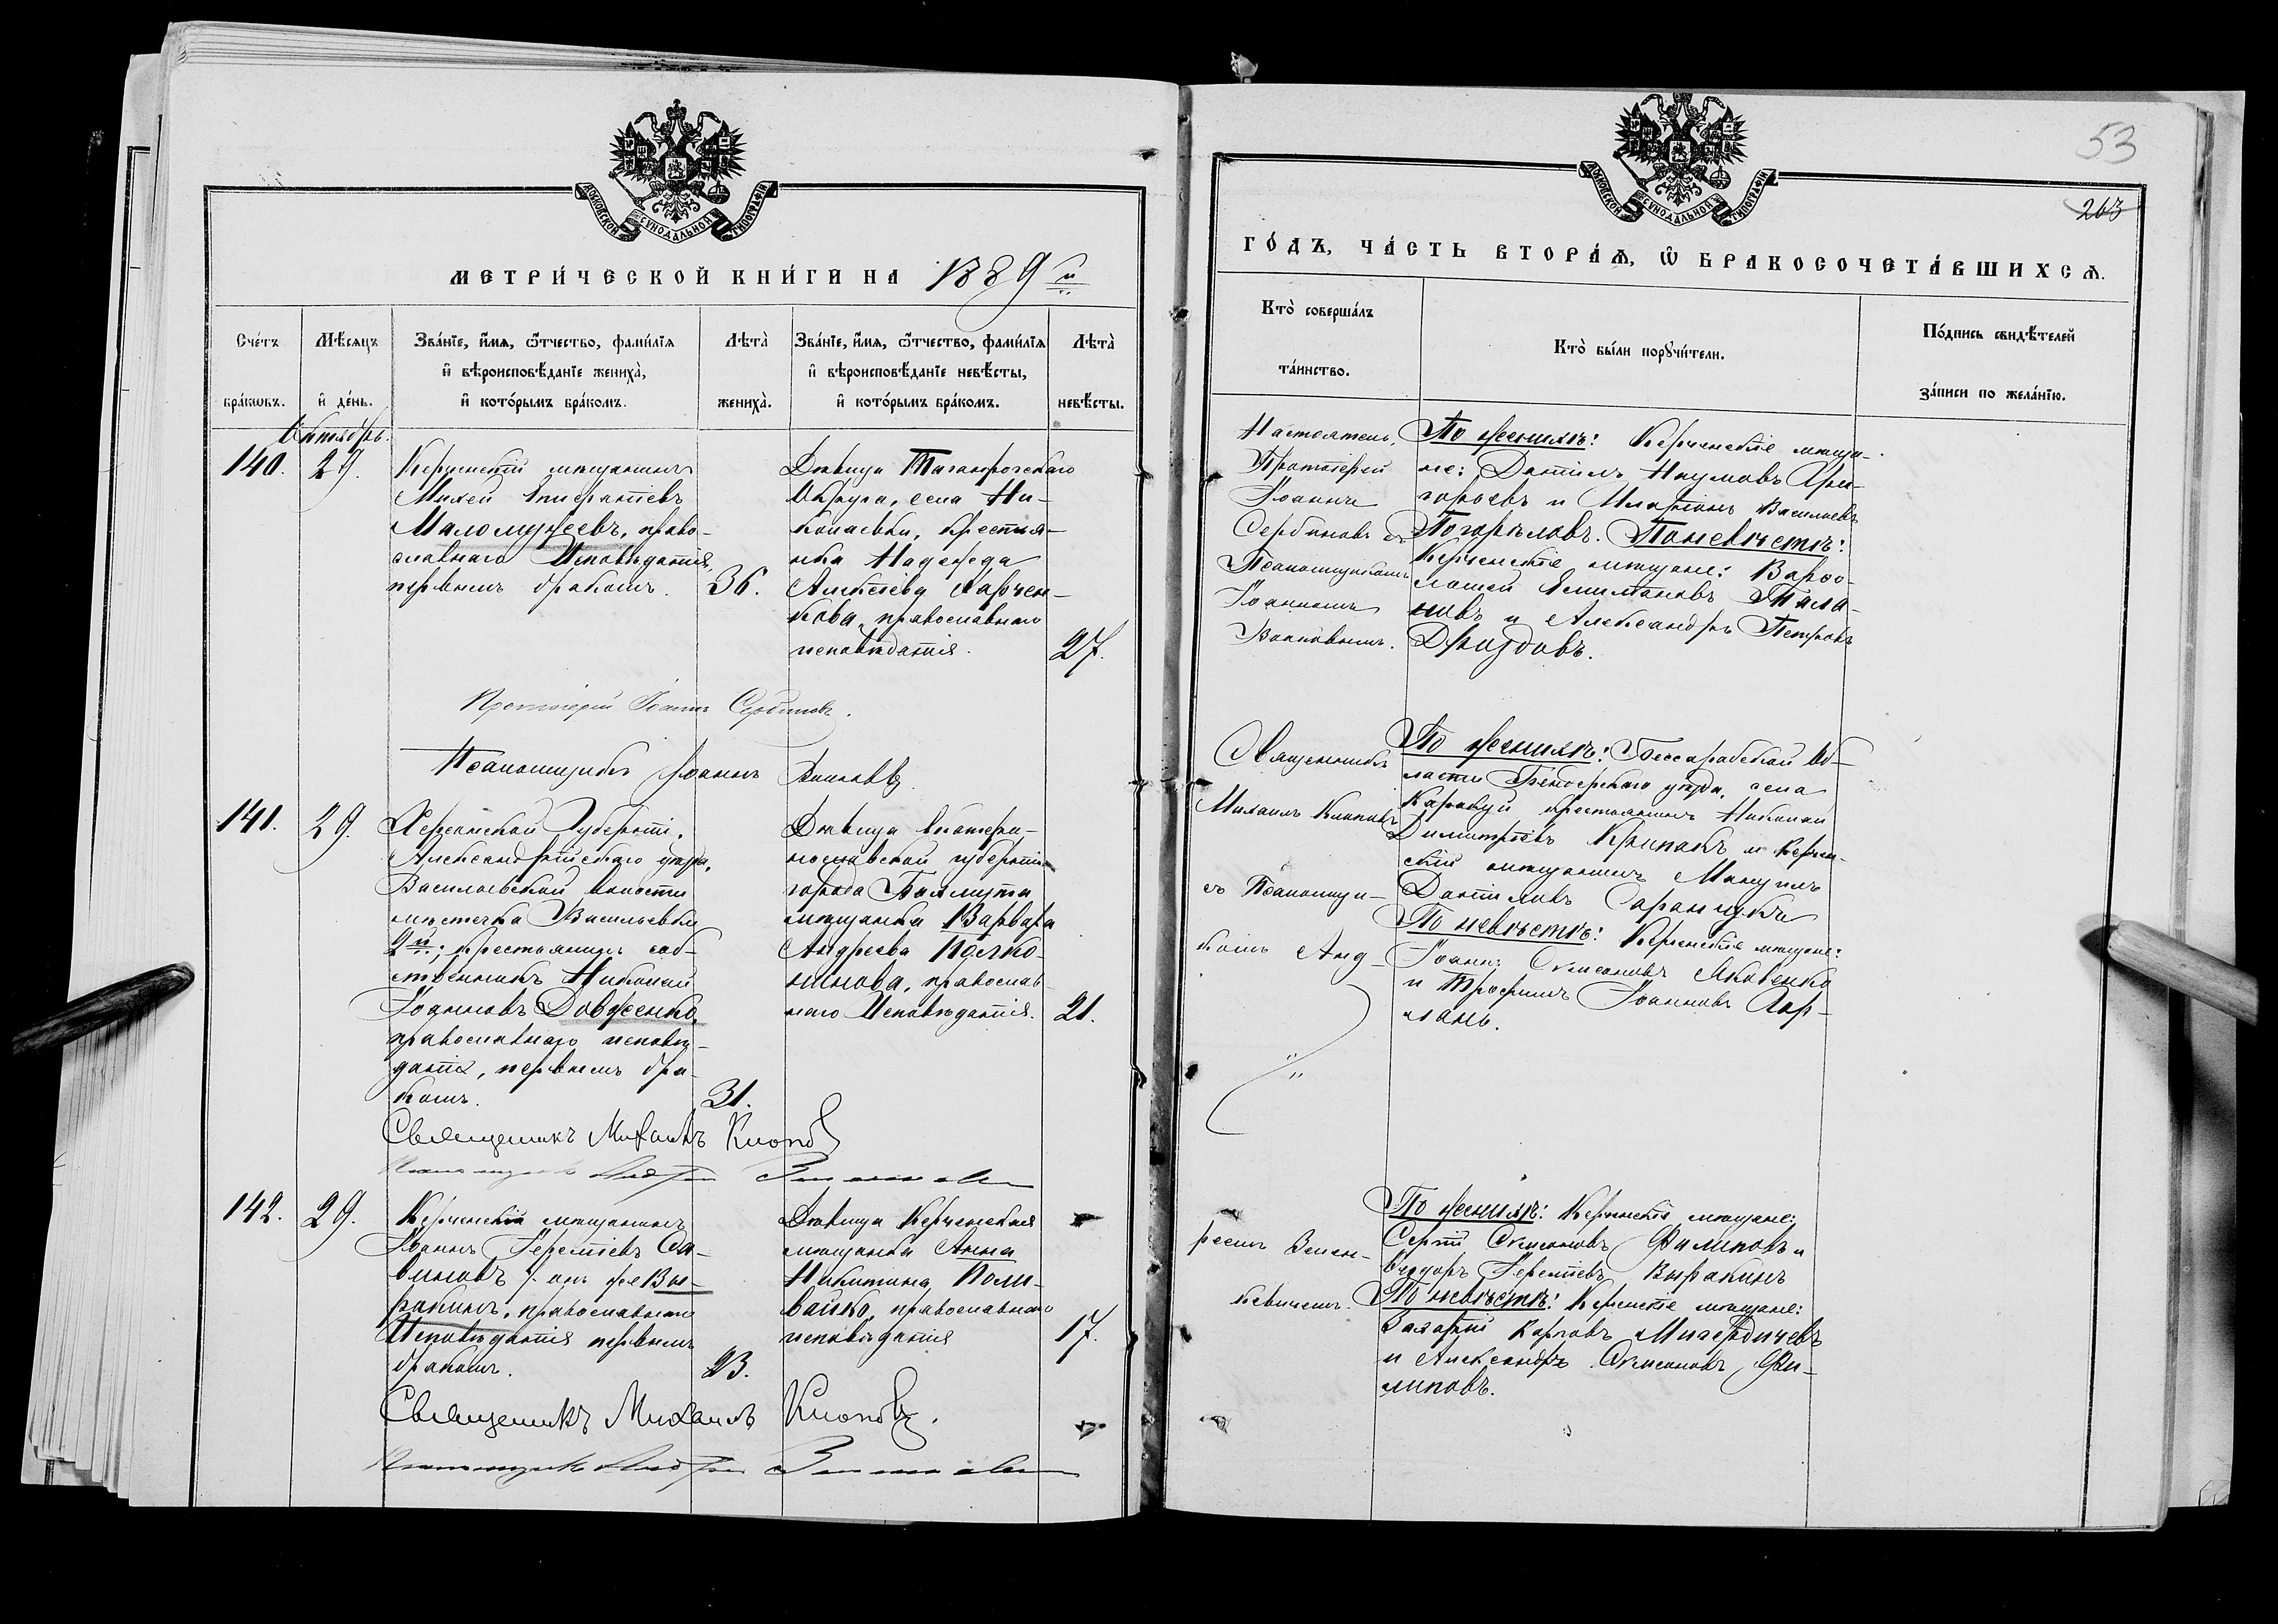 МОСКОВСКОЙ СѴНОДАЛЬНОЙ ТИПОГРАФІИ
МЕТРИ́ЧЕСКОЙ КНИ́ГИ НА 1889 й
Сче́тъ бра́кѡвъ.
Мѣ́сяцъ и҆ де́нь.
Зва́нїе, и҆́мѧ, ѻ҆́тчество, фами́лїѧ
и҆ вѣроисповѣ́данїе жениха̀,
и҆ кото́рымъ бра́комъ.
Лѣта̀ жениха̀.
Зва́нїе, и҆́мѧ, ѻ҆́тчество, фами́лїѧ
и҆ вѣроисповѣ́данїе невѣ́сты,
и҆ кото́рымъ бра́комъ.
Лѣта̀ невѣ́сты.
Октябрь.
140.
29.
Керченскій мѣщанинъ
Михей Епифаніевъ
Маломужеевъ, право-
славнаго Исповѣданія,
первымъ бракомъ.
36.
Дѣвица Таганрогскаго
Округа, села Ни-
колаевки, крестья-
нка Надежда
Алексѣева Харчен-
кова, православнаго
исповѣданія.
27.
Протоіерей Іоаннъ Сербиновъ.
Псаломщикъ Іоаннъ
141.
29.
Херсонской Губерніи,
Александрійскаго уѣзда,
Васильевской волости
мѣстечка Васильевки
2й; крестьянинъ соб-
ственникъ Николай
Іоанновъ Довженко,
православнаго исповѣ-
данія, первымъ бра-
комъ.
31.
Дѣвица Екатери-
нославской губерніи
города Бахмута
мѣщанка Варвара
Андреева
православ-
наго Исповѣданія.
21.
Священникъ Михаилъ Клоповъ
Псаломщикъ Андрей
142.
29.
Керченскій мѣщанинъ
Іоаннъ Іереміевъ Са-
виновъ онъ же Вы-
ракинъ, православнаго
Исповѣданія первымъ
бракомъ.
23.
Дѣвица Керченская
мѣщанка Анна
Никитина Поли-
вайко, православнаго
исповѣданія
17.
Священникъ Михаилъ Клоповъ.
Псаломщикъ Андрей
53
263
МОСКОВСКОЙ СѴНОДАЛЬНОЙ ТИПОГРАФІИ
ГО́ДЪ, ЧА́СТЬ ВТОРА́Ѧ, Ѽ БРАКОСОЧЕТА́ВШИХСѦ.
Кто̀ соверша́лъ
та́инство.
Кто̀ бы́ли порꙋчи́тели.
По́дпись свидѣ́телей
за́писи по жела́нїю.
Настоятель,
Протоіерей
Іоаннъ
Сербиновъ съ
Псаломщикомъ
Іоанномъ
По женихѣ: Керченскіе мѣща-
не: Даніилъ Наумовъ Гри-
горьевъ и Иларіонъ Васильевъ
Погорѣловъ. По невѣстѣ:
Керченскіе мѣщане: Варфо-
ломей
и Александръ Петровъ
Дроздовъ.
Священникъ
Михаилъ Клоповъ
съ Псаломщи-
комъ Анд-
По женихѣ: Бессарабской Об-
ласти Бендерскаго уѣзда, села
Каракуй крестьянинъ Николай
Димитріевъ и Керчен-
скій мѣщанинъ Мануилъ
Даніиловъ Саранчукъ
По невѣстѣ: Керченскіе мѣщане:
Іоаннъ Симеоновъ Яковенко
и Трофимъ Іоанновъ Гор-
лань.
реемъ Зелен-
кевичемъ.
По женихѣ: Керченскіе мѣщане:
Сергій Симеоновъ Филиповъ и
Ѳеодоръ Іереміевъ Выракинъ
По невѣстѣ: Керченскіе мѣщане:
Захарій Карповъ Мигердичевъ
и Александръ Симеоновъ Фи-
липовъ.